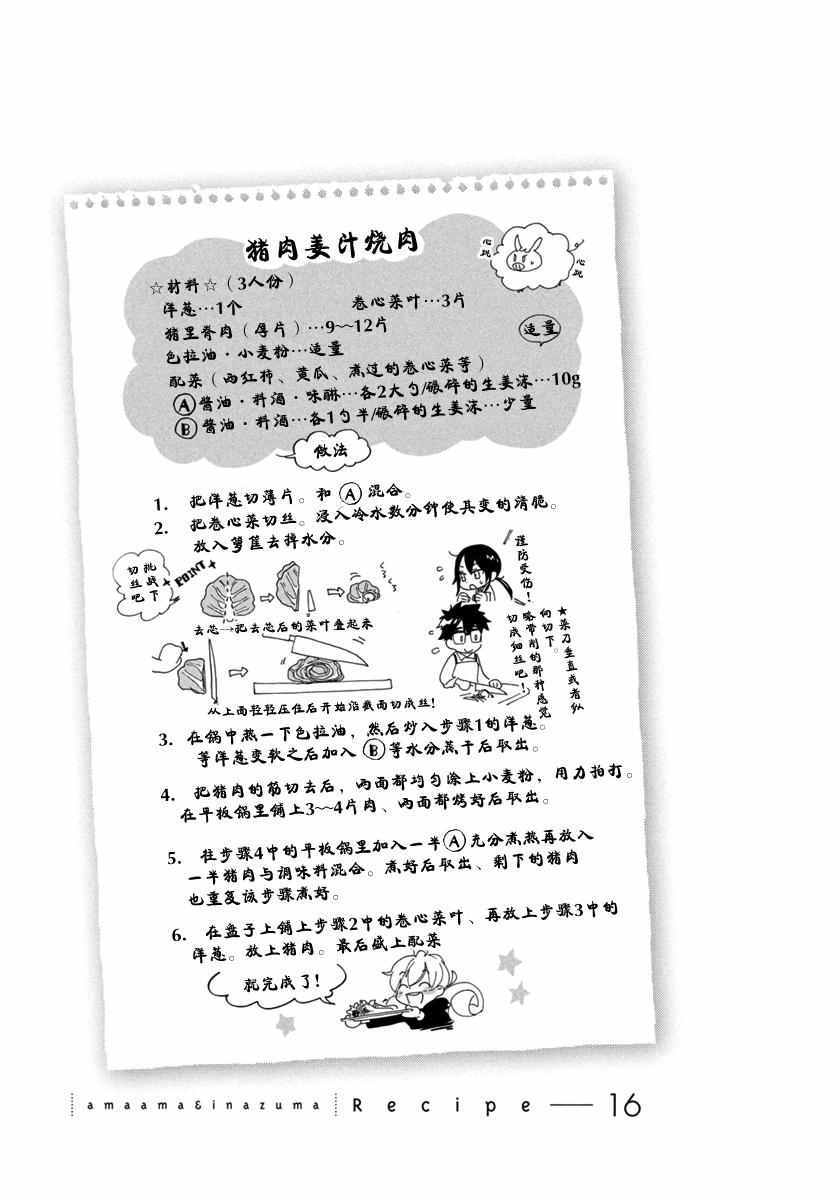 猪肉姜汁烧肉
心跳
心跳
☆材料☆（3人份）
洋葱…1个
卷心菜叶…3片
猪里脊肉（厚片）…9~~12片
适量
色拉油·小麦粉…适量
配菜（西红柿、黄瓜、煮过的卷心菜等）
Ⓐ酱油·料酒·味醂…各2大勺/碾碎的生姜冻…10g
Ⓑ酱油·料酒…各1勺半/碾碎的生姜冻…少量
做法
1. 把洋葱切薄片。和Ⓐ混合。
2. 把卷心菜切丝。浸入冷水数分钟使其变的清脆。
放入箩筐去掉水分。
挑战下
切丝吧
POINT
谨防受伤！
去芯→把去芯后的菜叶叠起来
★菜刀垂直或者纵
向切下。
略带削的那种感觉
切成细丝吧！
从上面轻轻压住后开始沿截面切成丝！
3. 在锅中热一下色拉油，然后炒入步骤1的洋葱。
等洋葱变软之后加入Ⓑ等水分蒸干后取出。
4. 把猪肉的筋切去后，两面都均匀涂上小麦粉，用力拍打。
在平板锅里铺上3~~4片肉、两面都烤好后取出。
5. 往步骤4中的平板锅里加入一半Ⓐ充分煮热再放入
一半猪肉与调味料混合。煮好后取出、剩下的猪肉
也重复该步骤煮好。
6. 在盘子上铺上步骤2中的卷心菜叶、再放上步骤3中的
洋葱。放上猪肉。最后盛上配菜
就完成了！
amaama&inazuma
Recipe — 16